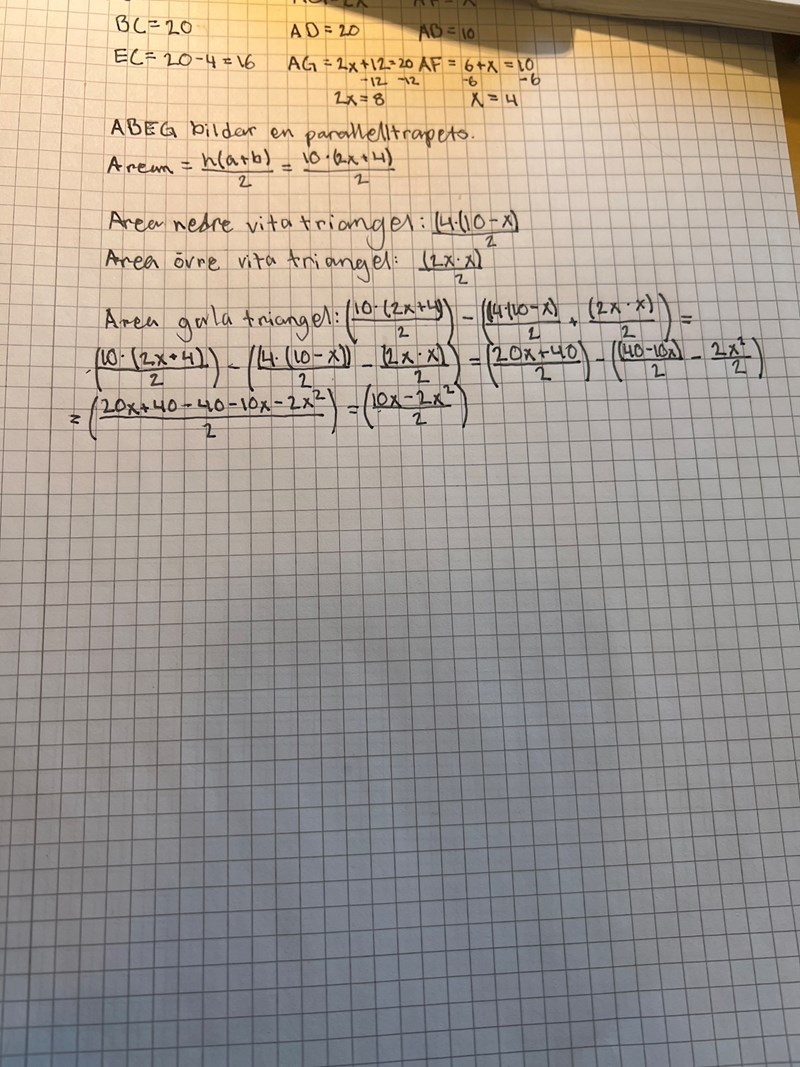 BC=20 AD=20 AB=10
EC=20-4=16 AG=2x+12=20 AF=6+x=10
-12 -12 -6 -6
2x=8 x=4
ABEG bildar en parallelltrapets.
Arean = h(a+b)/2 = 10·(2x+4)/2
Area nedre vita triangel: (4·(10-x)/2
Area övre vita triangel: (2x·x)/2
Area gula triangel: (10·(2x+4)/2) - ((4·(10-x)/2 + (2x·x)/2) =
(10·(2x+4)/2) - ((4·(10-x))/2 - (2x·x)/2) = (20x+40/2) - ((40-10x)/2 - 2x²/2)
= (20x+40-40-10x-2x²/2) = (10x-2x²/2)